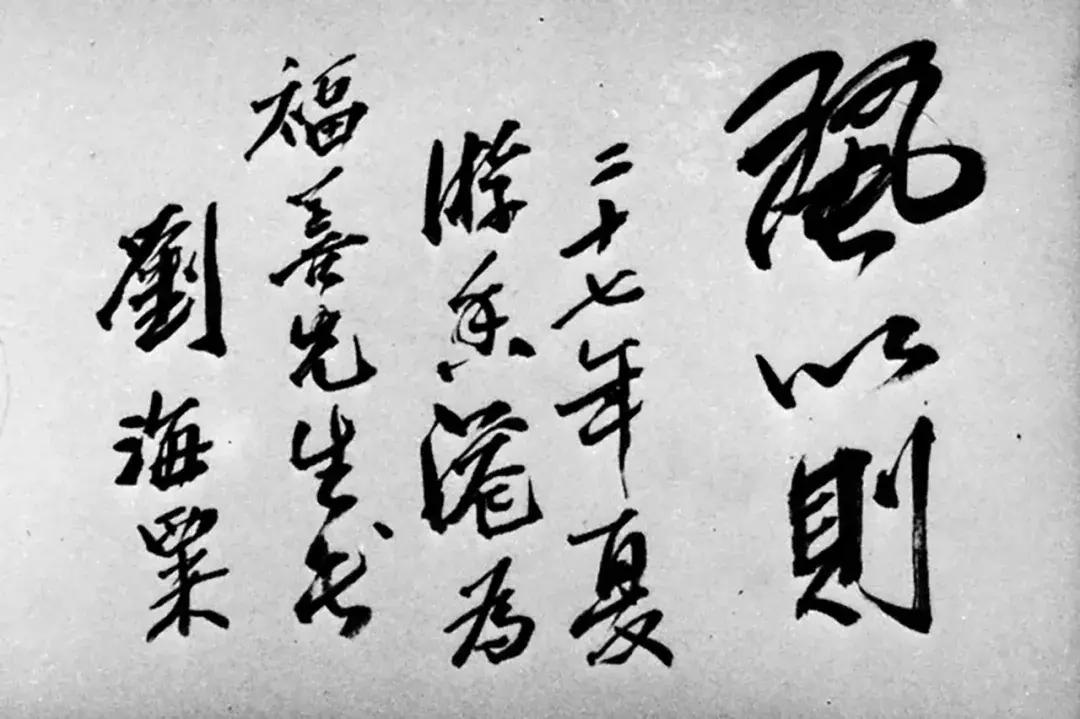 麗以則
二十七年夏
游香港為
福善先生書
劉海粟